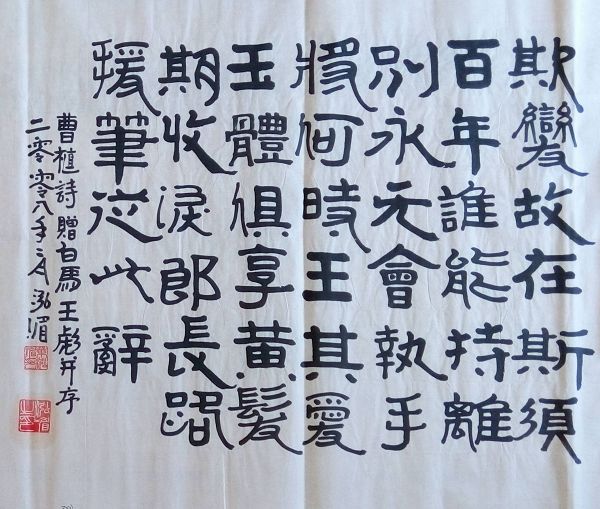 欺變故在斯須
百年誰能持離
別永无會執手
將何時王其愛
玉體俱享黄髮
期收淚即長路
援筆從此辭
曹植詩贈白馬王彪并序
二零零八年二月泓湄